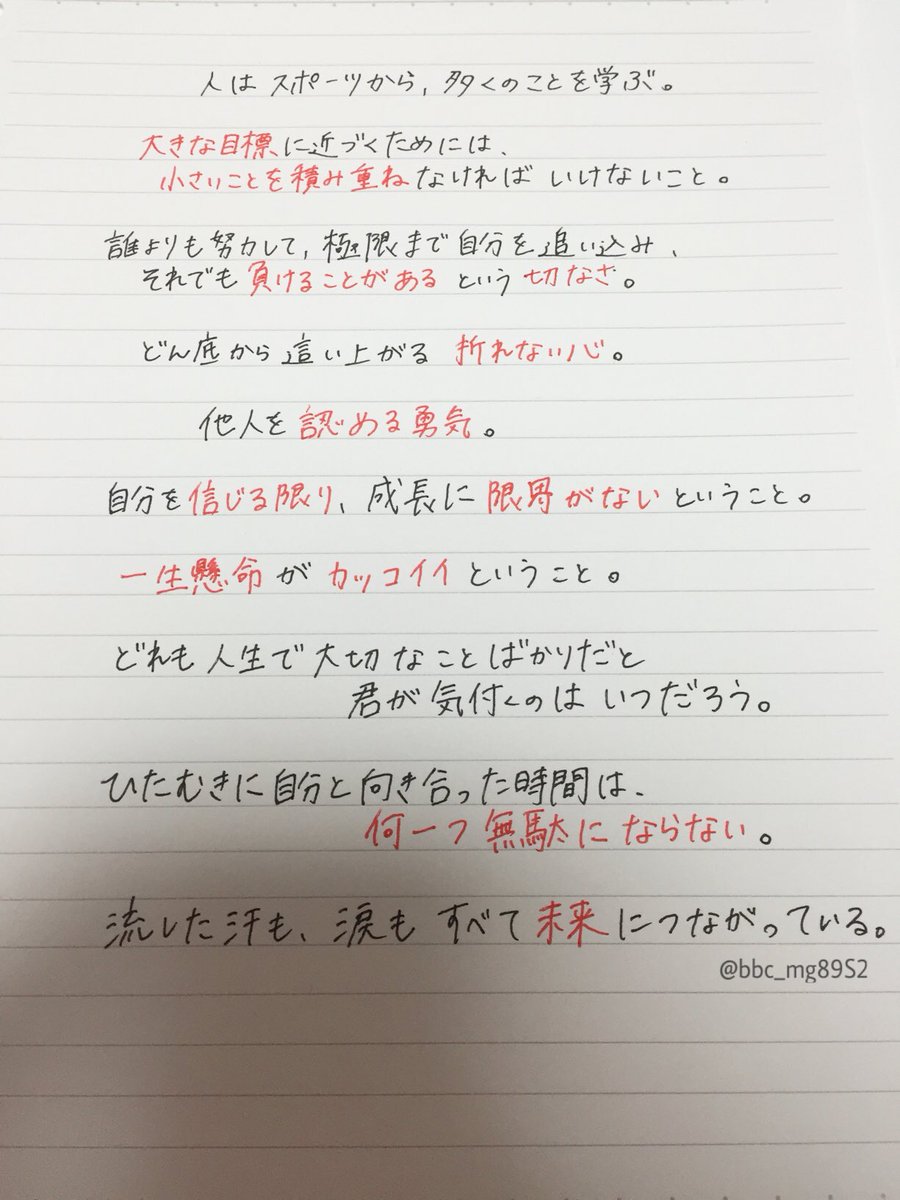 人は スポーツから, 多くのことを学ぶ。
大きな目標に近づくためには、
小さいことを積み重ねなければ いけないこと。
誰よりも努力して, 極限まで自分を追い込み、
それでも 負けることがある という 切なさ。
どん底から這い上がる 折れない心。
他人を 認める勇気。
自分を信じる限り、成長に 限界がないということ。
一生懸命が カッコイイ ということ。
どれも人生で大切なことばかりだと
君が気付くのは いつだろう。
ひたむきに自分と向き合った時間は、
何一つ 無駄に ならない。
流した汗も、涙も すべて未来につながっている。
@bbc_mg89S2